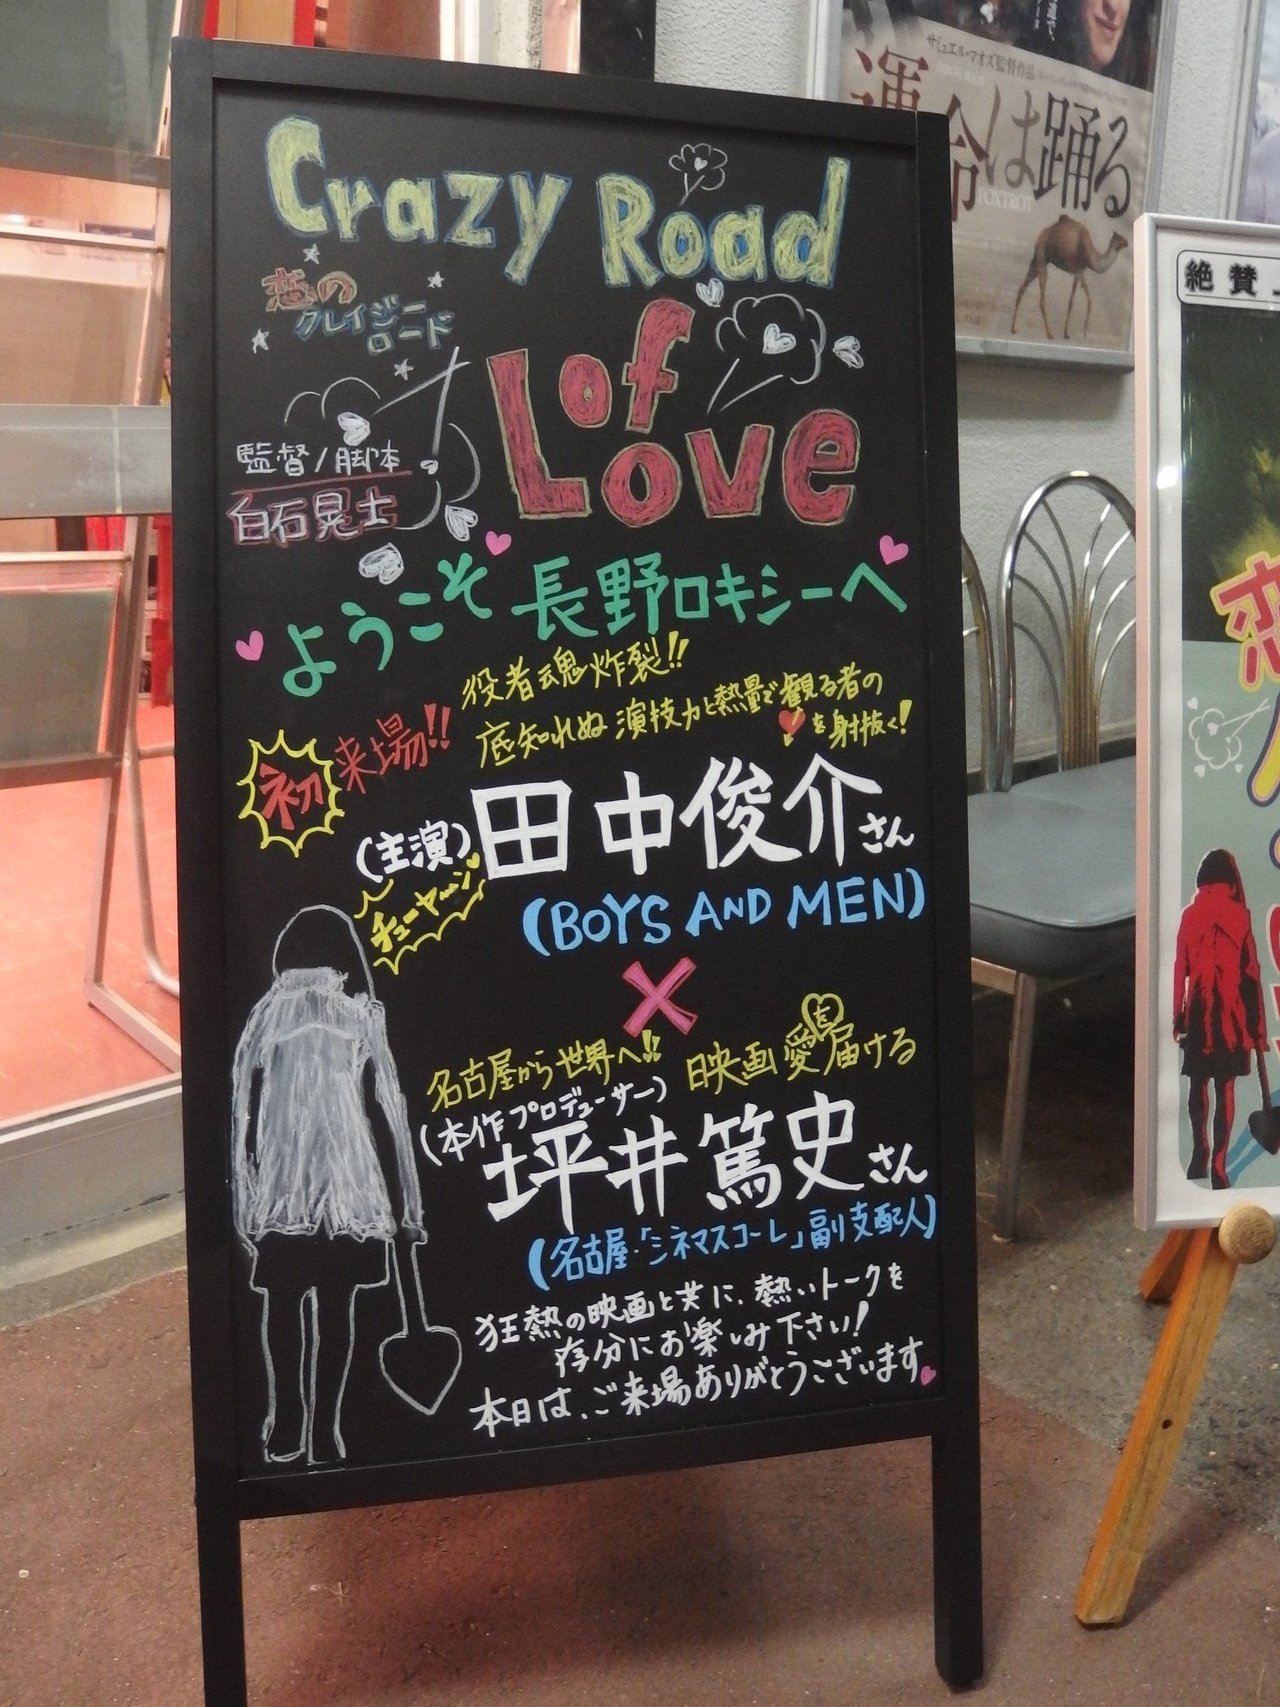 Crazy Road
of
Love
恋の
クレイジー
ロード
監督/脚本
白石晃士
ようこそ 長野ロキシーへ
初来場!!
役者魂炸裂!!
底知れぬ演技力と熱量で観る者の
を射抜く!
(主演)
田中俊介さん
チューヤーン
(BOYS AND MEN)
×
名古屋から世界へ!! 映画愛を届ける
(本作プロデューサー)
坪井篤史さん
(名古屋・「シネマスコーレ」副支配人)
狂熱の映画と共に、熱いトークを
存分にお楽しみ下さい!
本日は、ご来場ありがとうございます
サミュエル・マオズ監督作品
運命は踊る
FOXTROT
絶賛上
恋